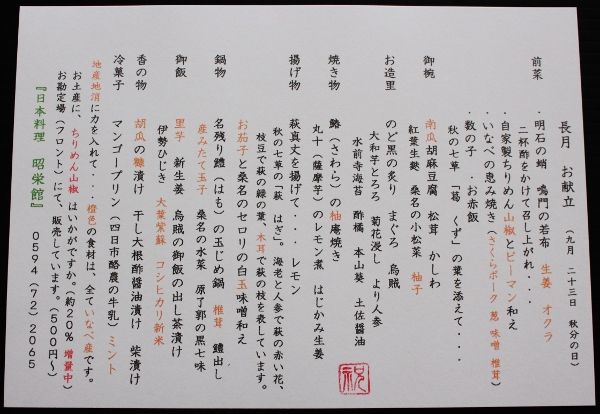 長月　お献立　（九月　二十三日　秋分の日）
前菜　・明石の蛸　鳴門の若布　生姜　オクラ
二杯酢をかけて召し上がれ・・・
・自家製ちりめん山椒とピーマン和え
・いなべの恵み焼き（さくらポーク　葱　味噌　椎茸）
・数の子　・お赤飯
秋の七草　「葛　くず」の葉を添えて・・・
御椀　南瓜胡麻豆腐　松茸　かしわ
紅葉生麩　桑名の小松菜　柚子
お造里　のど黒の炙り　まぐろ　烏賊
大和芋とろろ　菊花浸し　より人参
水前寺海苔　酢橘　本山葵　土佐醤油
焼き物　鰆（さわら）の柚庵焼き
丸十（薩摩芋）のレモン煮　はじかみ生姜
揚げ物　萩真丈を揚げて・・・　レモン
秋の七草の「萩　はぎ」。海老と人参で萩の赤い花、
枝豆で萩の緑の葉、木耳で萩の枝を表しています。
お茄子と桑名のセロリの白玉味噌和え
鍋物　名残り鱧（はも）の玉じめ鍋　椎茸　鱧出し
産みたて玉子　桑名の水菜　原了郭の黒七味
御飯　里芋　新生姜　烏賊の御飯の出し茶漬け
伊勢ひじき　大葉紫蘇　コシヒカリ新米
香の物　胡瓜の糠漬け　干し大根酢醤油漬け　柴漬け
冷菓子　マンゴープリン（四日市酪農の牛乳）ミント
地産地消に力を入れて・・橙色の食材は、全ていなべ産です。
お土産に、ちりめん山椒はいかがですか。（約２０％　増量中）
お勘定場（フロント）にて、販売しています。（５００円～）
『日本料理　昭栄館』　０５９４（７２）２０６５
祝